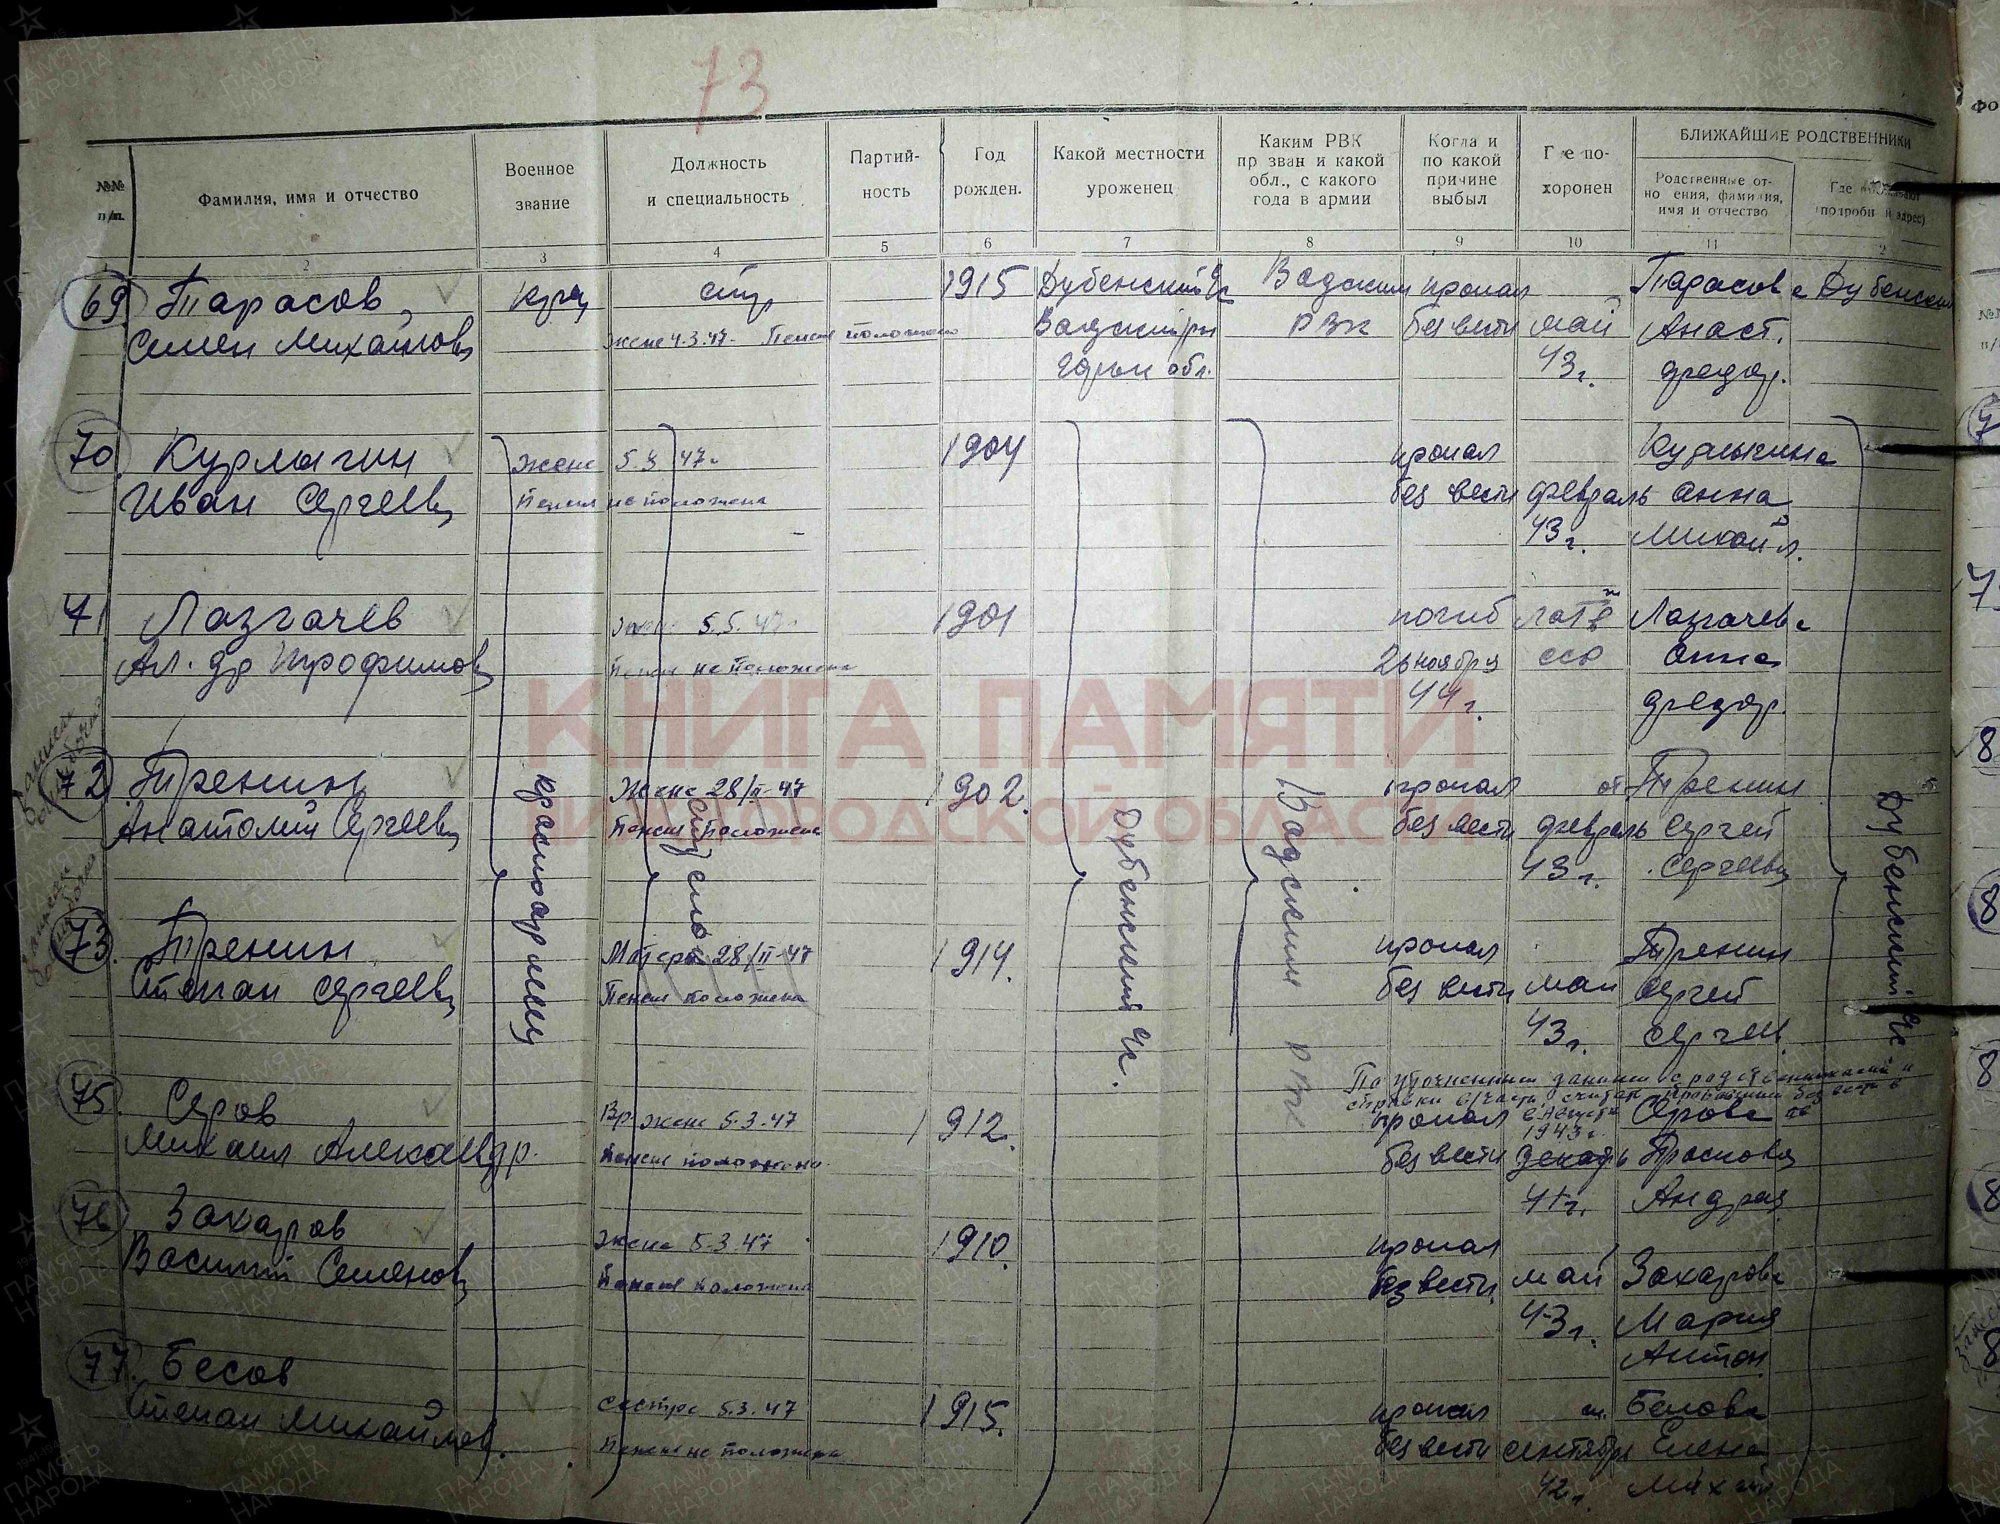 73
№№ п/п.
Фамилия, имя и отчество
Военное звание
Должность и специальность
Партий- ность
Год рожден.
Какой местности уроженец
Каким РВК пр зван и какой обл., с какого года в армии
Когда и по какой причине выбыл
Где по- хоронен
БЛИЖАЙШИЕ РОДСТВЕННИКИ
Родственные от- но ения, фамилия, имя и отчество
1 2 3 4 5 6 7 8 9 10 11 2
69. Тарасов стр 1915 Дубенский Вадским пропал Тарасова Дубенский
Семен Михайлов жене 4.3.47 Пенсия положена Вадский рн РВК без вести май Анаст.
Горьк обл. 43 г. Федор.
70. Курмыгин жене 5.3 47г 1904 пропал
Иван Сергеев Пенсия не положена без вести февраль Анна
43 г. Михайл.
71 Лазгачев 5.5.47 1901 погиб Лазгачева
Ал.др Трофимов Пенсия не положена 26 ноября ССР Анна
44 г. Федор.
72 Тренин Жене 28/II-47 1902 пропал от Тренин
Анатолий Сергеев Пенсия положена без вести февраль Сергей
43 г. Сергеев
73. Тренин Матери 28/II-47 1914. пропал Тренин
Степан Сергеев Пенсия положена без вести май Сергей
43 г. Сергеев.
красноармеец
стр
Дубенский
Вадским РВК
Дубенский
По уточненным данным с родственниками и
справки в/части считать пропавшим без вести в
75. Серов Вр. жене 5.3.47 1912. пропал в августе 1943 г. Серова
Михаил Александр. Пенсия положена без вести декабрь Прасковя
41 г. Андрея
76 Захаров жене 5.3.47 1910. пропал
Василий Семенов Пенсия положена без вести май Захарова
43 г. Мария
Антон
77. Бесов сестре 5.3.47 1915. пропал
Степан Михайлов. Пенсия не положена без вести сентябрь Елена
42 г. Михай
КНИГА ПАМЯТИ
НИЖЕГОРОДСКОЙ ОБЛАСТИ
ПАМЯТЬ НАРОДА